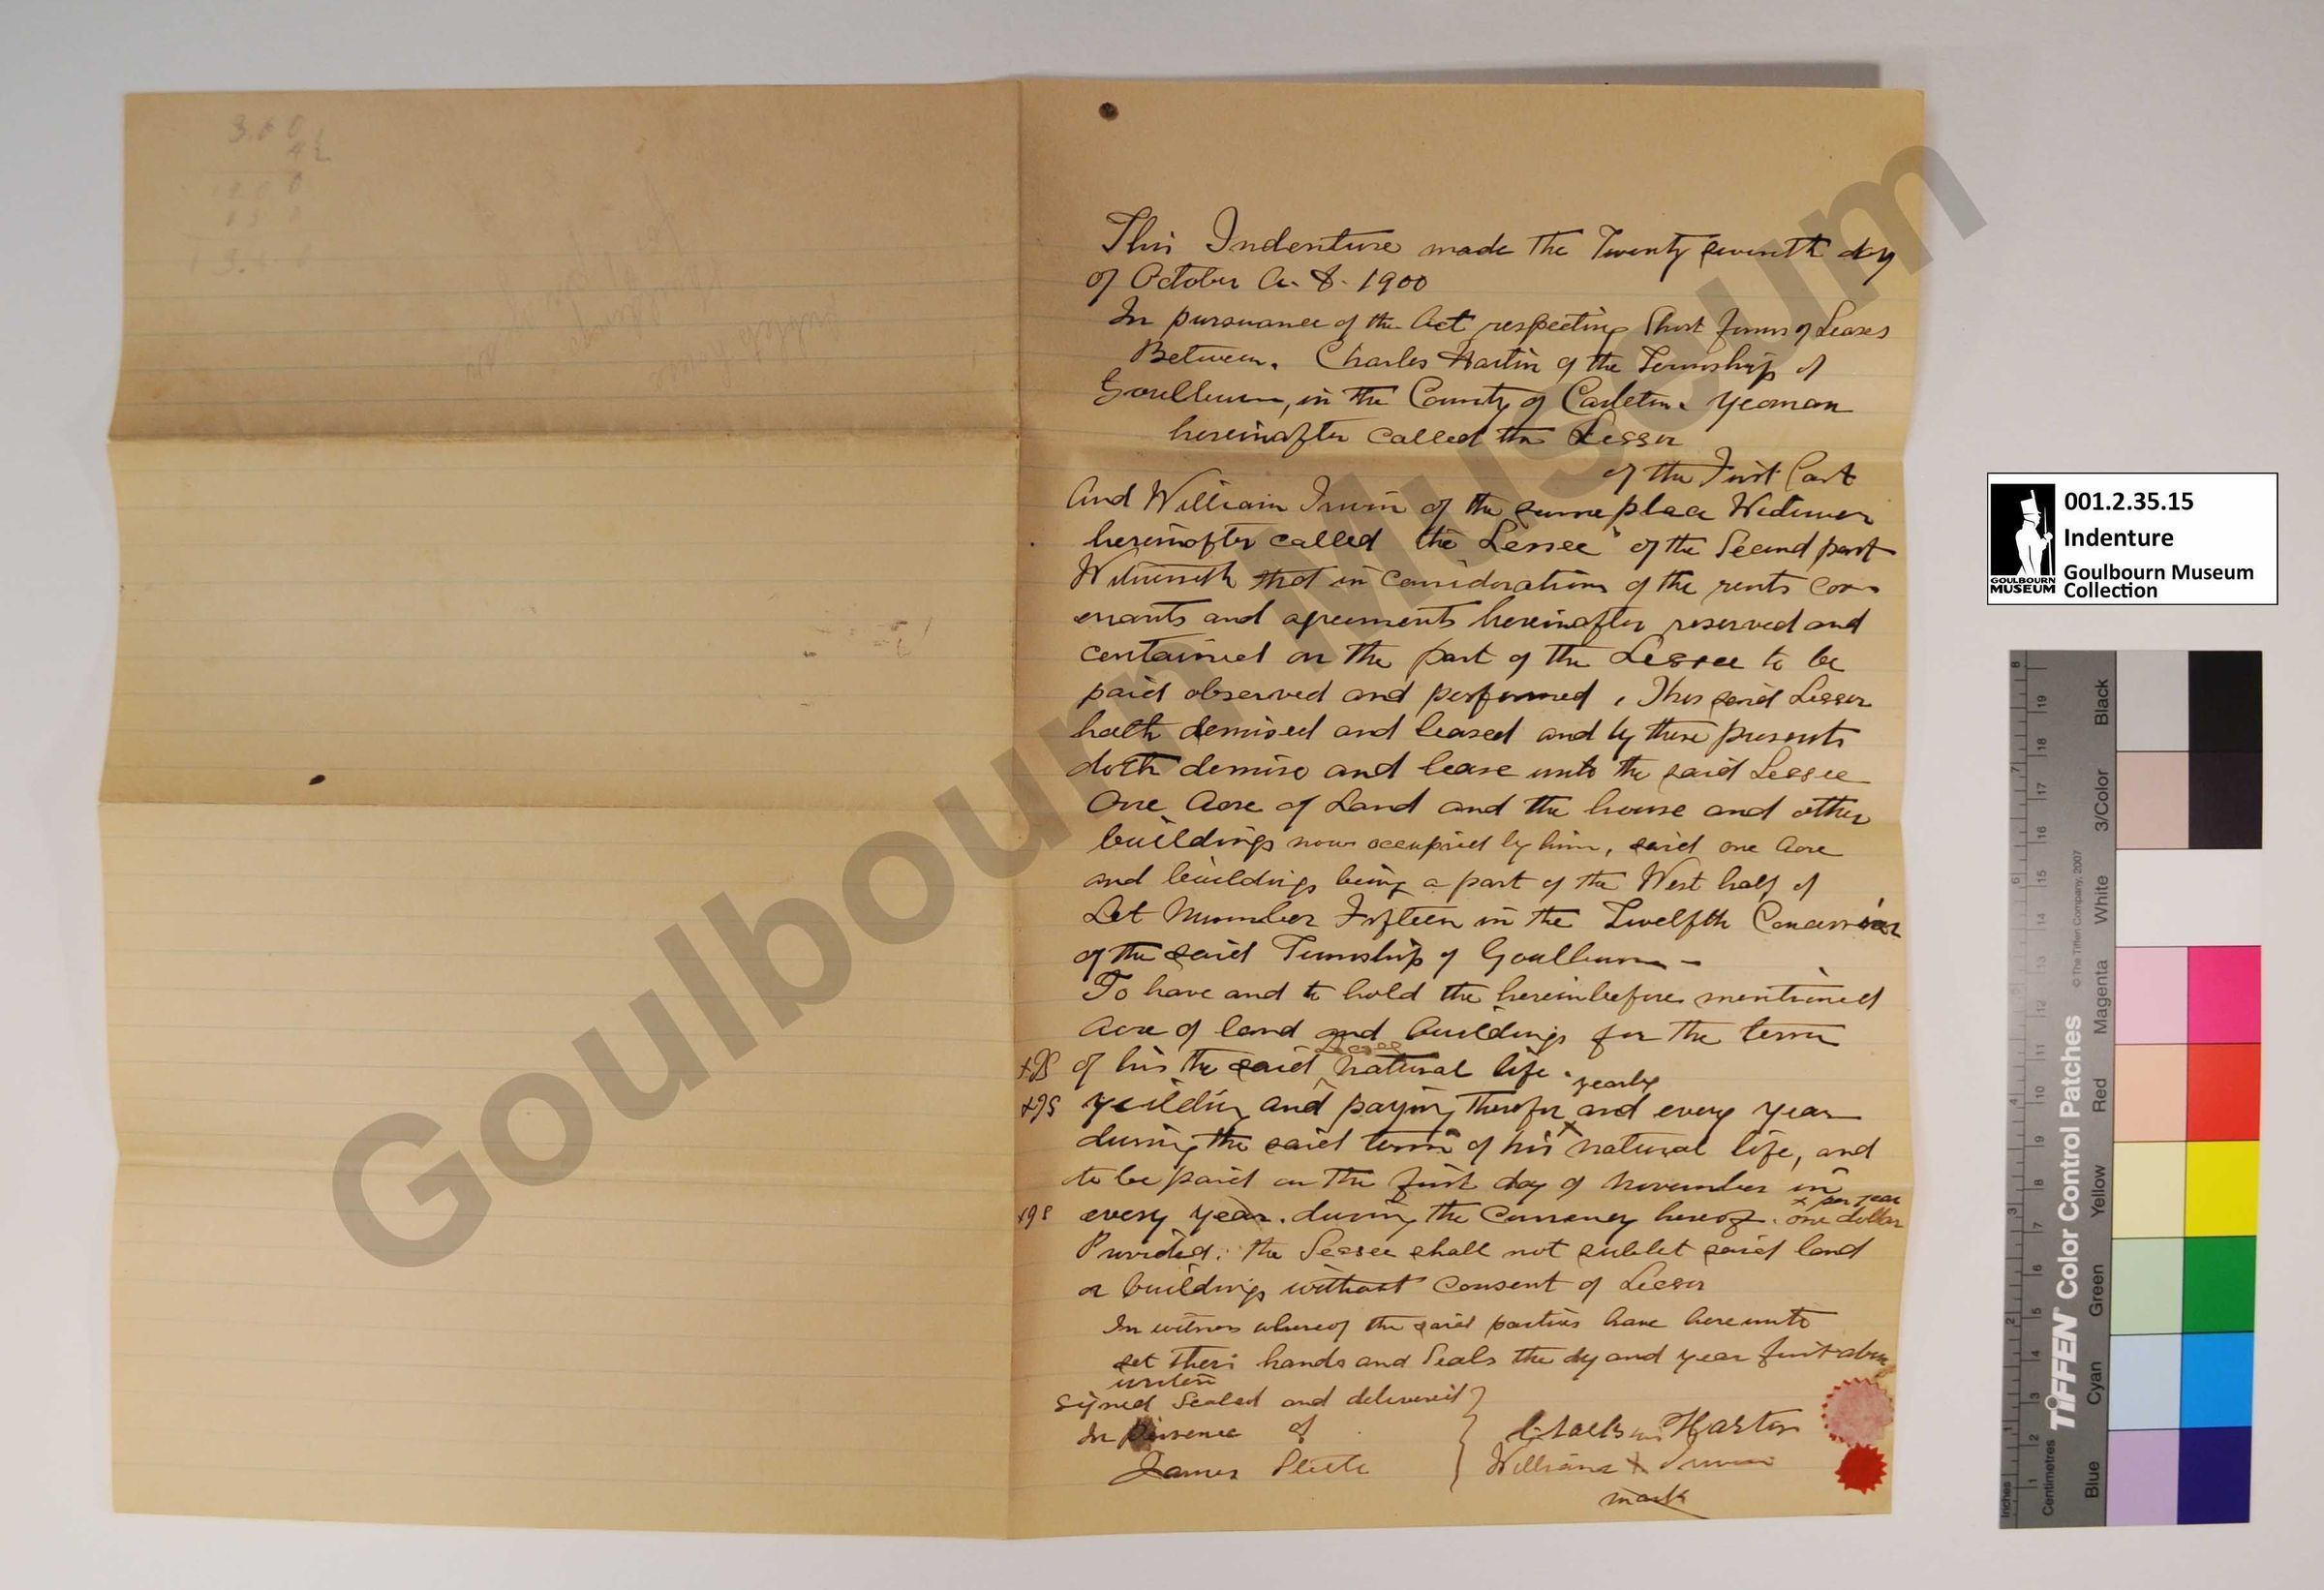 360
This Indenture made the Twenty seventh day
of October A. D. 1900
In pursuance of the Act respecting Short forms of Leases
Between. Charles Hartin of the Township of
Goulburn, in the County of Carleton. Yeoman
hereinafter called the Lessor
of the First Part
And William Irwin of the same place Widower
hereinafter called "the Lessee" of the Second part
Witnesseth that in considerations of the rents cov-
enants and agreements hereinafter reserved and
contained on the part of the Lessee to be
paid observed and performed, The said Lessor
hath demised and leased and by these presents
doth demise and lease unto the said Lessee
One Acre of Land and the house and other
buildings now occupied by him, said one Acre
and buildings being a part of the West half of
Lot Number Fifteen in the Twelfth Concession
of the said Township of Goulburn -
To have and to hold the hereinbefore mentioned
Acre of land and buildings for the term
Lessee
of his the said natural life.
yearly
yeilding and paying therefor and every year
during the said term of his natural life, and
to be paid on the first day of November in
x per year
every year. during the Currency hereof. one dollar
Provided. the Lessee shall not sublet said land
or buildings without consent of Lessor
In witness whereof the said parties have hereunto
set their hands and Seals the dy and year first above
writen
Signed Sealed and delivered
In Presence of
Charles Hartin
James
William X Irwin
mark
Goulbourn Museum
001.2.35.15
Indenture
Goulbourn Museum
Collection
GOULBOURN
MUSEUM
TIFFEN Color Control Patches
© The Tiffen Company, 2007
Inches
Centimetres
Blue
Cyan
Green
Yellow
Red
Magenta
White
3/Color
Black